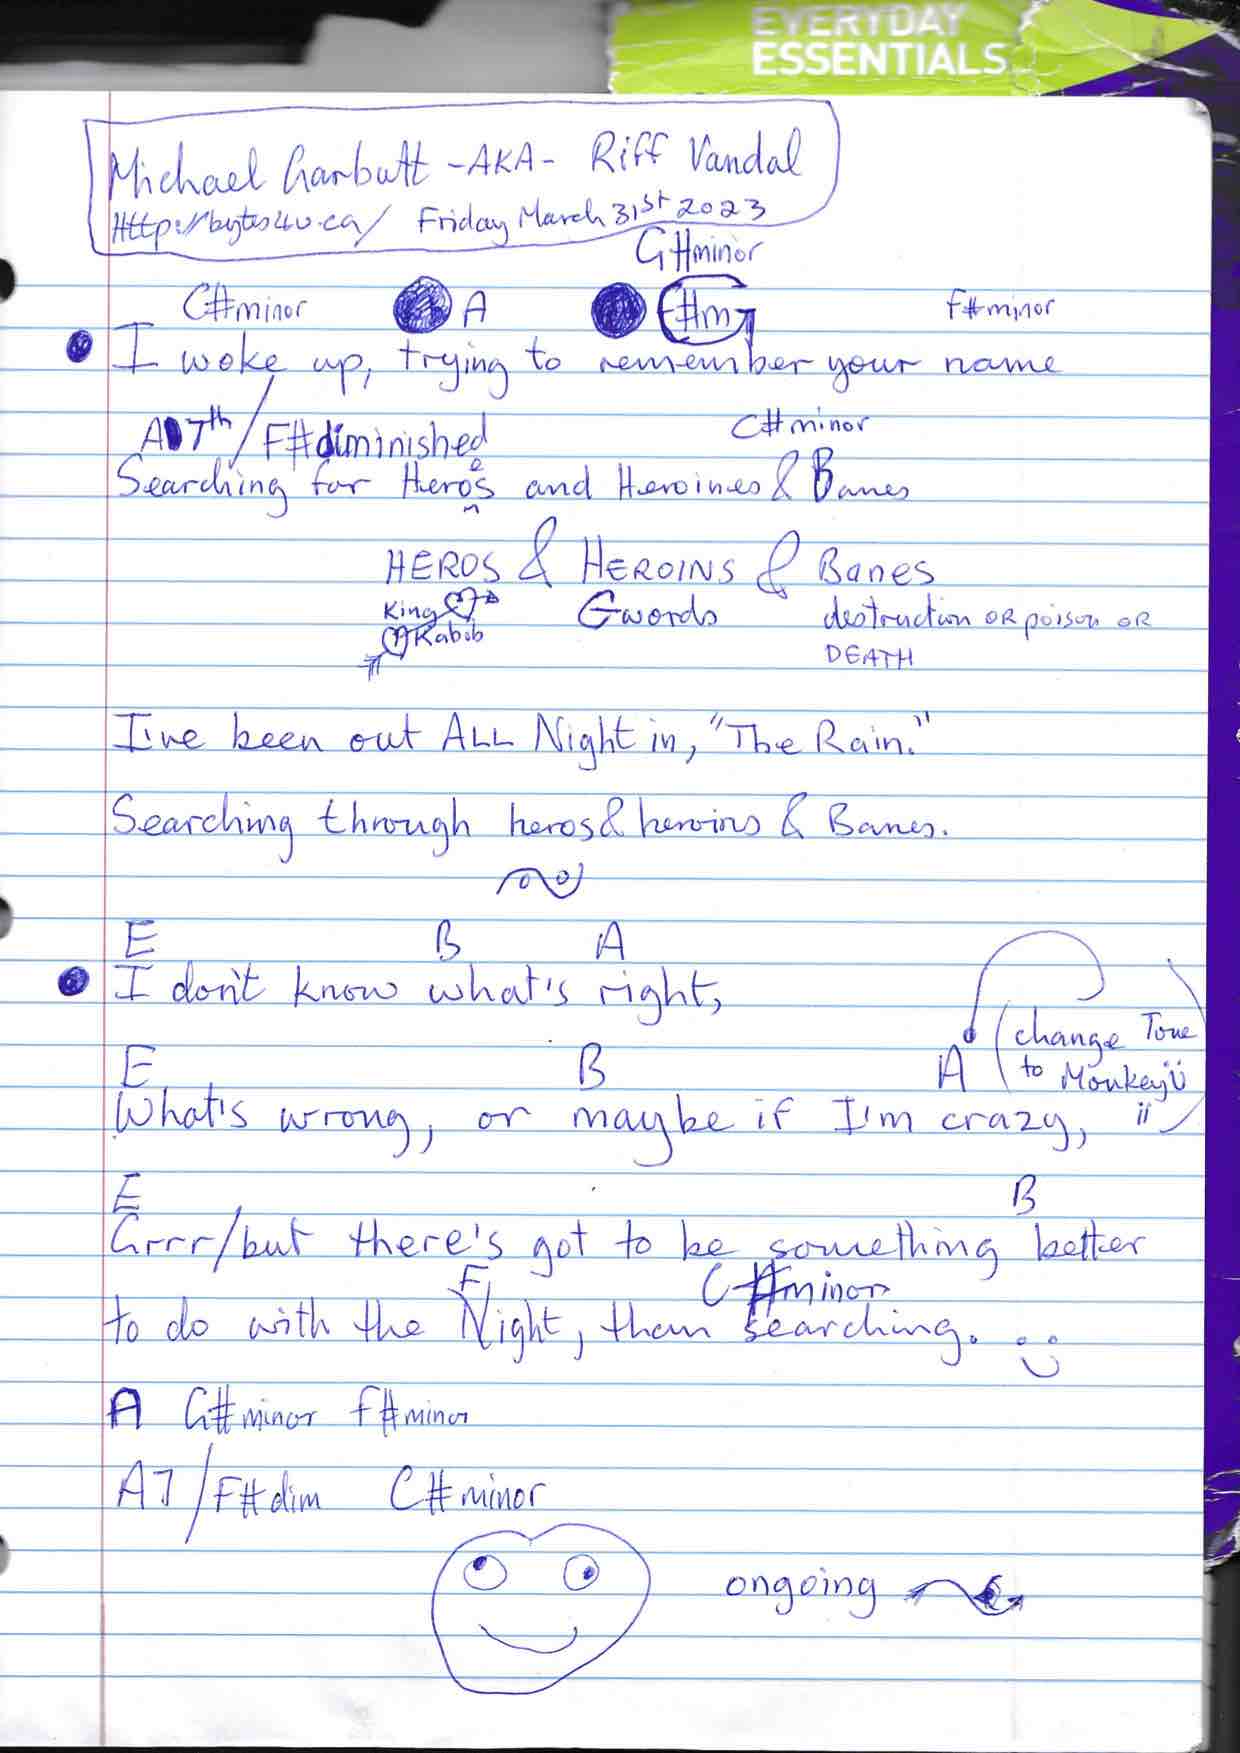 EVERYDAY
ESSENTIALS
Michael Garbutt -AKA- Riff Vandal
Http://bytes4u.ca/ Friday March 31st 2023
G#minor
C#minor A F#m F#minor
I woke up, trying to remember your name
A 7th / F#diminished C#minor
Searching for Heroes and Heroines & Banes
HEROS & HEROINS & Banes
King Gwords destruction OR poison OR
Kabob DEATH
I've been out ALL Night in, "The Rain."
Searching through heros & heroins & Banes.
E B A
I don't know what's right,
(change Tone
E B A to Monkey)
What's wrong, or maybe if I'm crazy,
E B
Grrr/but there's got to be something better
E C#minor
to do with the Night, than searching.
A G#minor F#minor
A7 / F#dim C#minor
ongoing